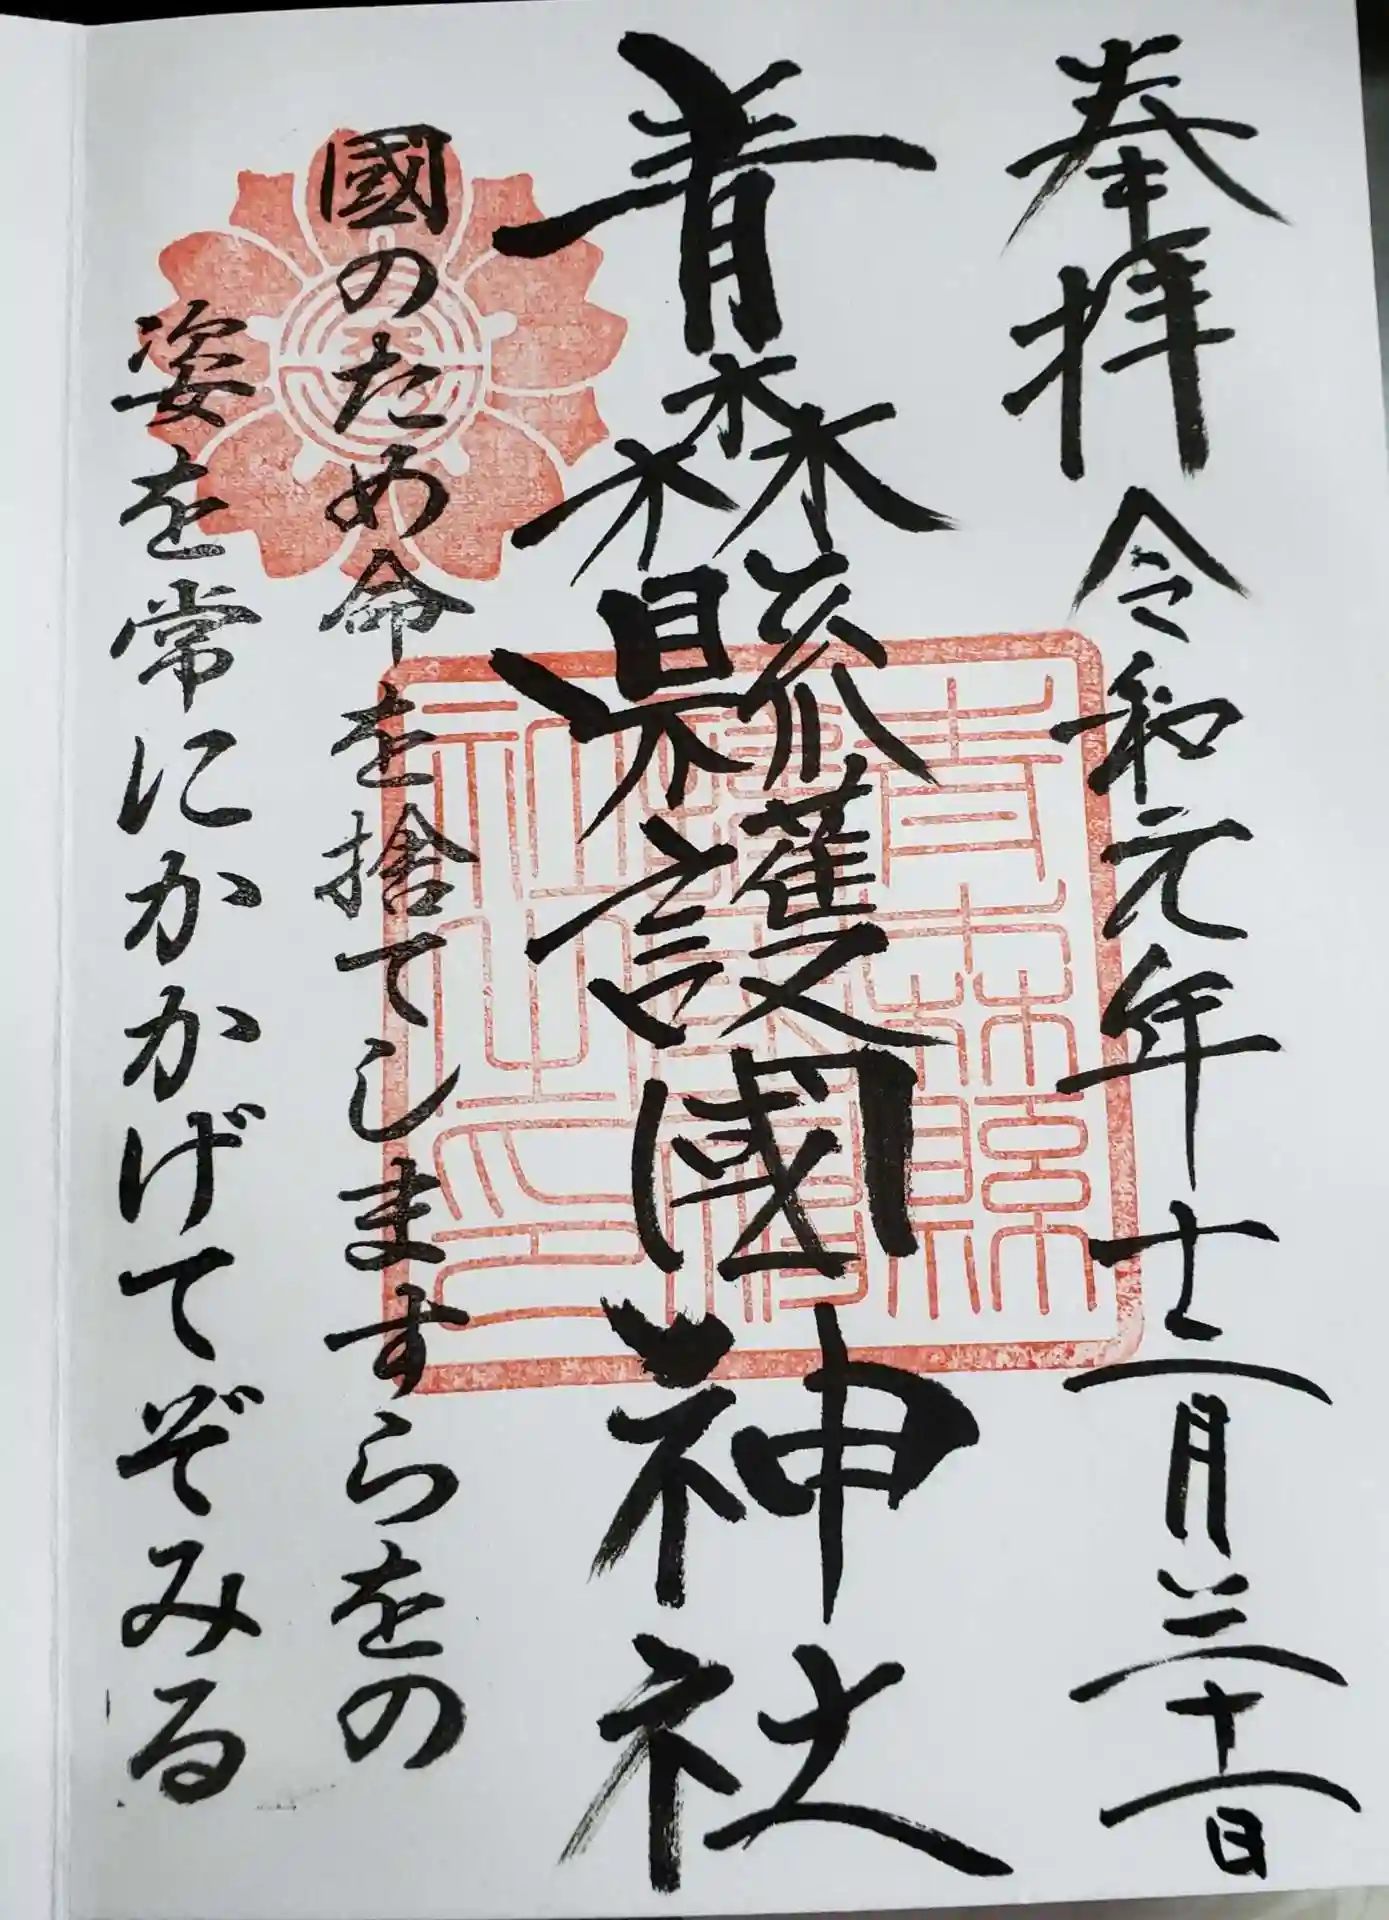 奉拝 令和元年十二月三十一日
青森縣護國神社
國のため命を捨てしますらをの
姿を常にかかげてぞみる